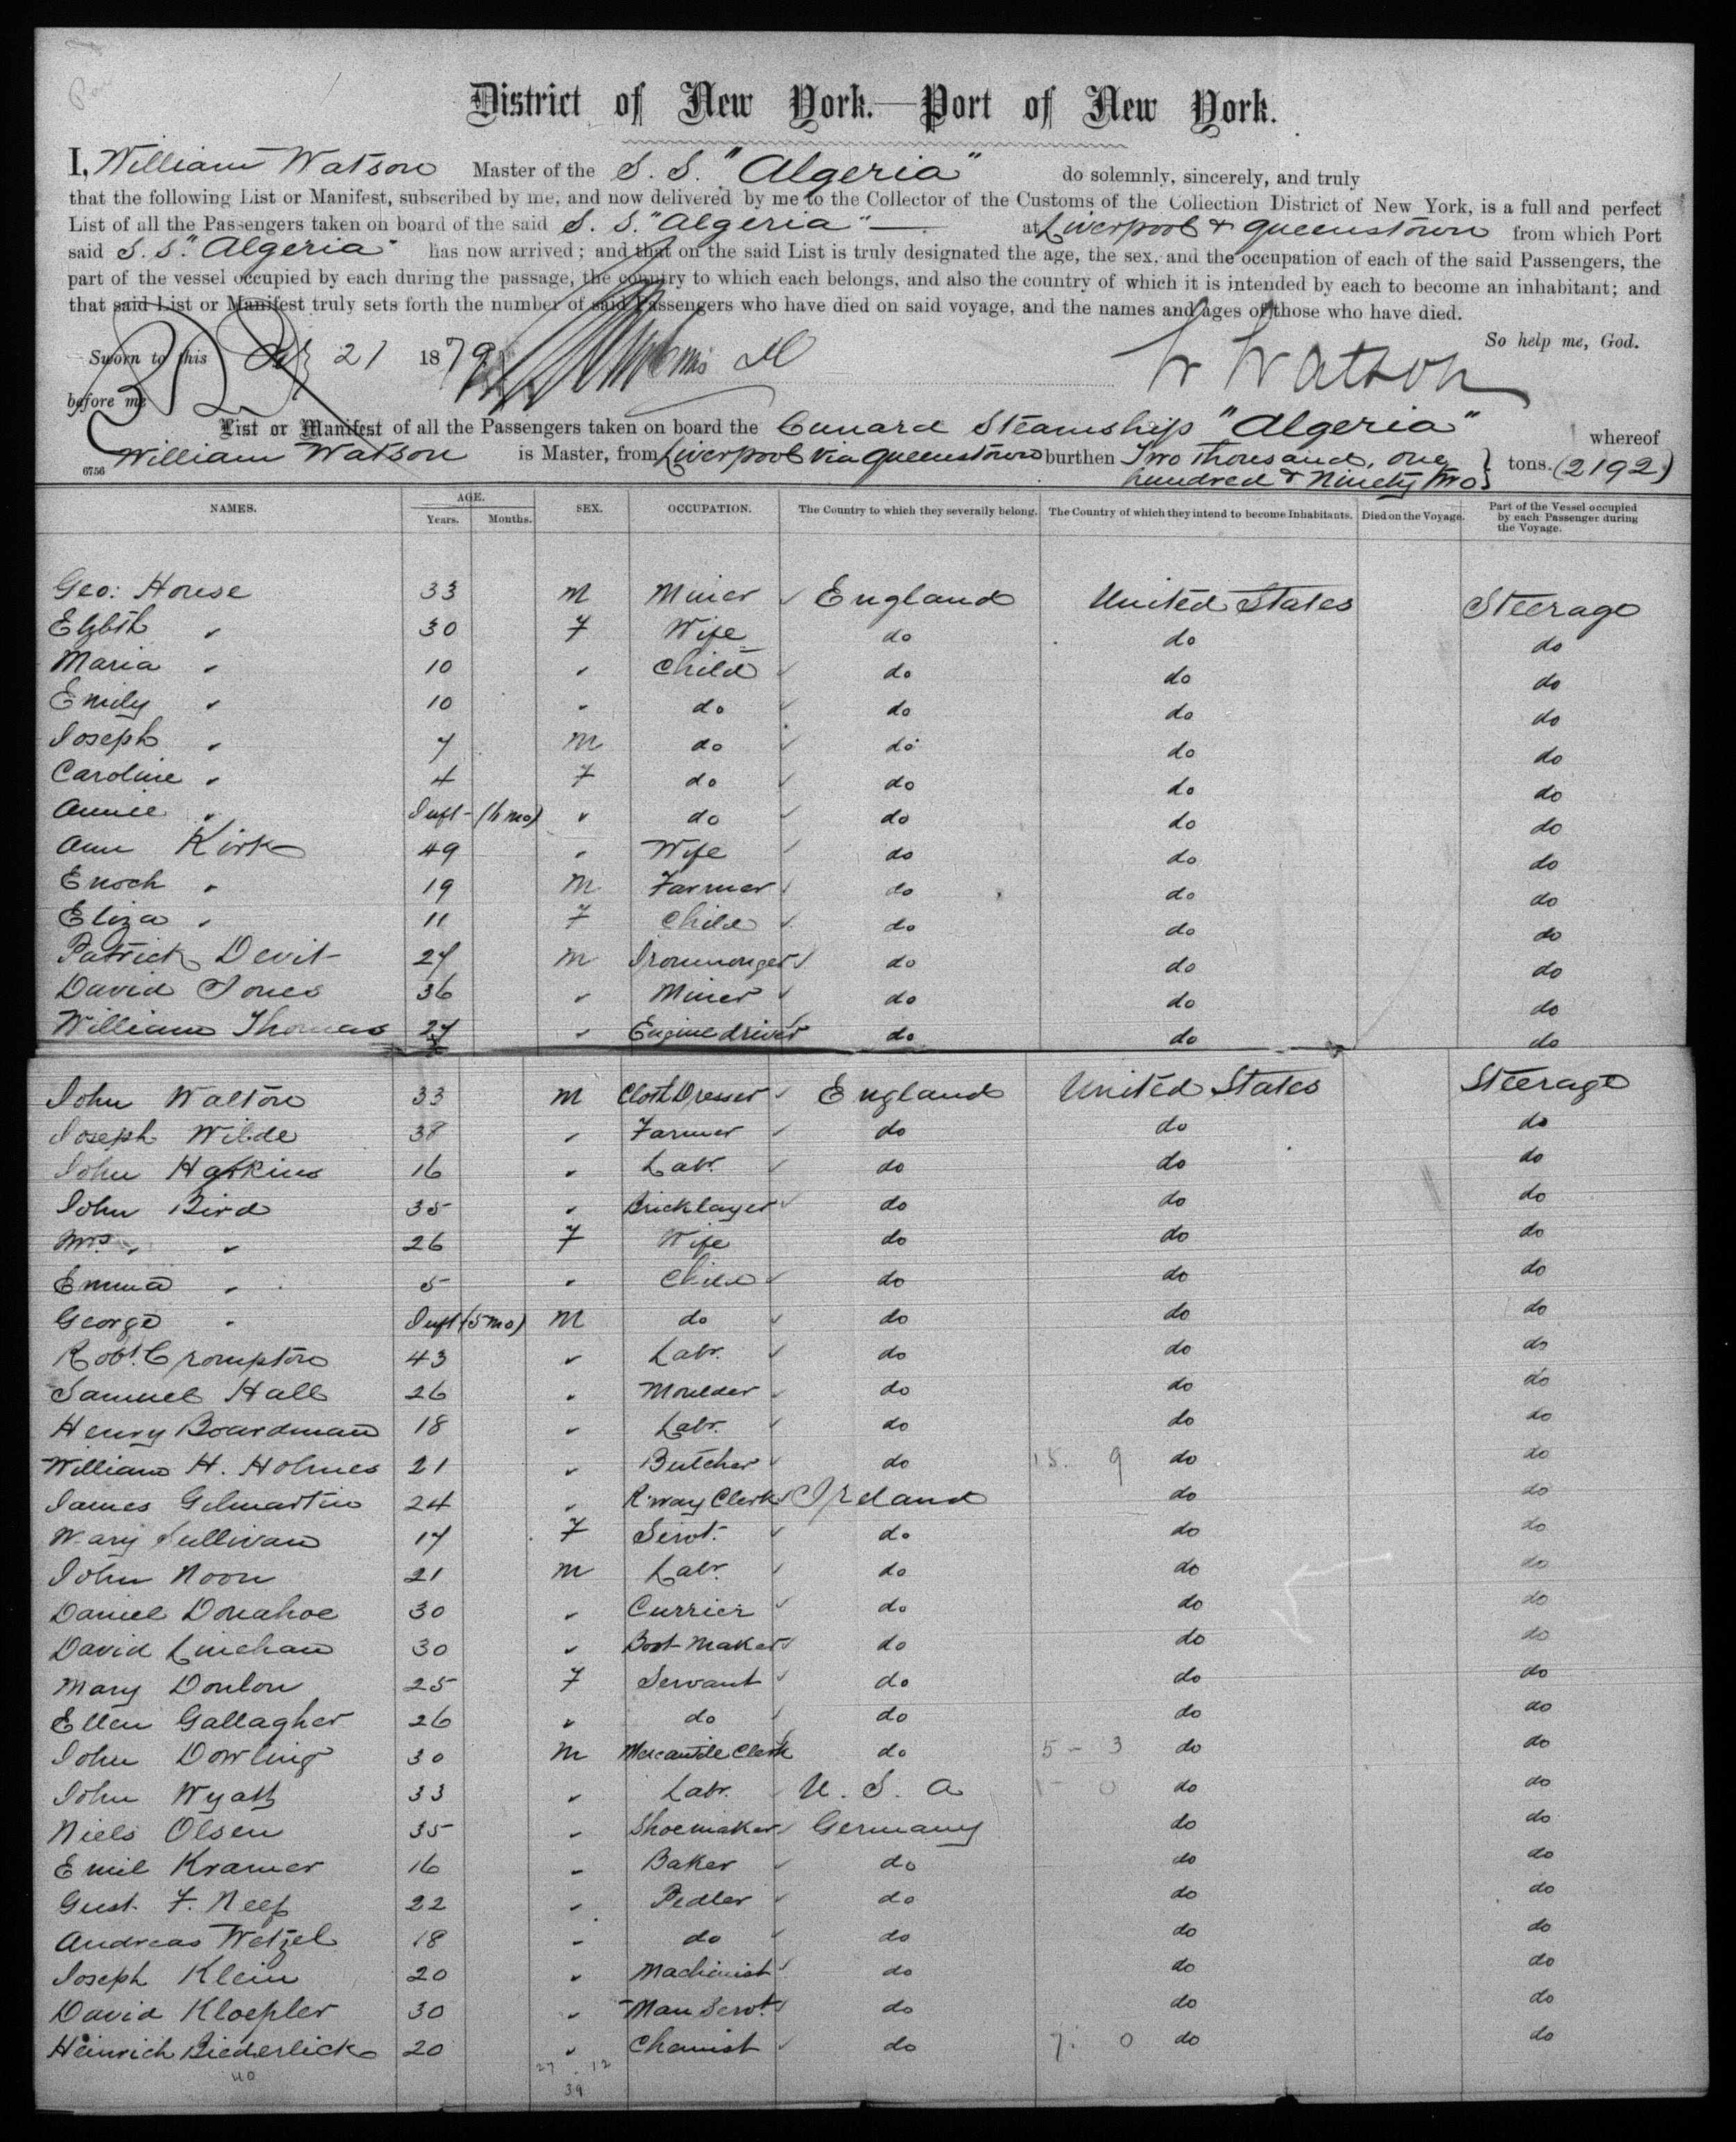 District of New York.—Port of New York.
I, William Watson Master of the S. S. "Algeria" do solemnly, sincerely, and truly
that the following List or Manifest, subscribed by me, and now delivered by me to the Collector of the Customs of the Collection District of New York, is a full and perfect
List of all the Passengers taken on board of the said S. S. "Algeria" — at Liverpool & Queenstown from which Port
said S. S. "Algeria" has now arrived; and that on the said List is truly designated the age, the sex, and the occupation of each of the said Passengers, the
part of the vessel occupied by each during the passage, the country to which each belongs, and also the country of which it is intended by each to become an inhabitant; and
that said List or Manifest truly sets forth the number of said Passengers who have died on said voyage, and the names and ages of those who have died.
So help me, God.
Sworn to this 21 1879
before me
W Watson
List or Manifest of all the Passengers taken on board the Cunard Steamship "Algeria" whereof
William Watson is Master, from Liverpool via Queenstown burthen Two Thousand, one hundred & Ninety two tons. (2192)
6756
NAMES. AGE. Years. Months. SEX. OCCUPATION. The Country to which they severally belong. The Country of which they intend to become Inhabitants. Died on the Voyage. Part of the Vessel occupied by each Passenger during the Voyage.
Geo: House 33 M Miner England United States Steerage
Elzbth " 30 F Wife do do do
Maria " 10 " Child do do do
Emily " 10 " do do do do
Joseph " 7 M do do do do
Caroline " 4 F do do do do
Annie " Inft - (6 mo) " do do do do
Ann Kirk 49 " Wife do do do
Enoch " 19 M Farmer do do do
Eliza " 11 F Child do do do
Patrick Devit 27 M Ironmonger do do do
David Jones 36 " Miner do do do
William Thomas 27 " Engine driver do do do
John Walton 33 M Cloth Dresser England United States Steerage
Joseph Wilde 38 " Farmer do do do
John Harkins 16 " Labr. do do do
John Bird 35 " Bricklayer do do do
Mrs. " 26 F Wife do do do
Emma " 5 " Child do do do
George " Inft (5 mo) M do do do do
Robt. Crompton 43 " Labr. do do do
Samuel Hall 26 " Moulder do do do
Henry Boardman 18 " Labr. do do do
William H. Holmes 21 " Butcher do 15. 9 do do
James Gilmartin 24 " R'way Clerk Ireland do do
Mary Sullivan 17 F Servt. do do do
John Noon 21 M Labr. do do do
Daniel Donahoe 30 " Currier do do do
David Linehan 30 " Boot-Maker do do do
Mary Donlon 25 F Servant do do do
Ellen Gallagher 26 " do do do do
John Dowling 30 M Mercantile Clerk do 5 - 3 do do
John Wyatt 33 " Labr. U. S. A 1 - 0 do do
Niels Olsen 35 " Shoemaker Germany do do
Emil Kramer 16 " Baker do do do
Gust. F. Neef 22 " Pedler do do do
Andreas Wetzel 18 " do do do do
Joseph Klein 20 " Machinist do do do
David Kloepler 30 " Man Servt. do do do
Heinrich Biederlick 20 " Chemist do 7. 0 do do
40 27 . 12
39